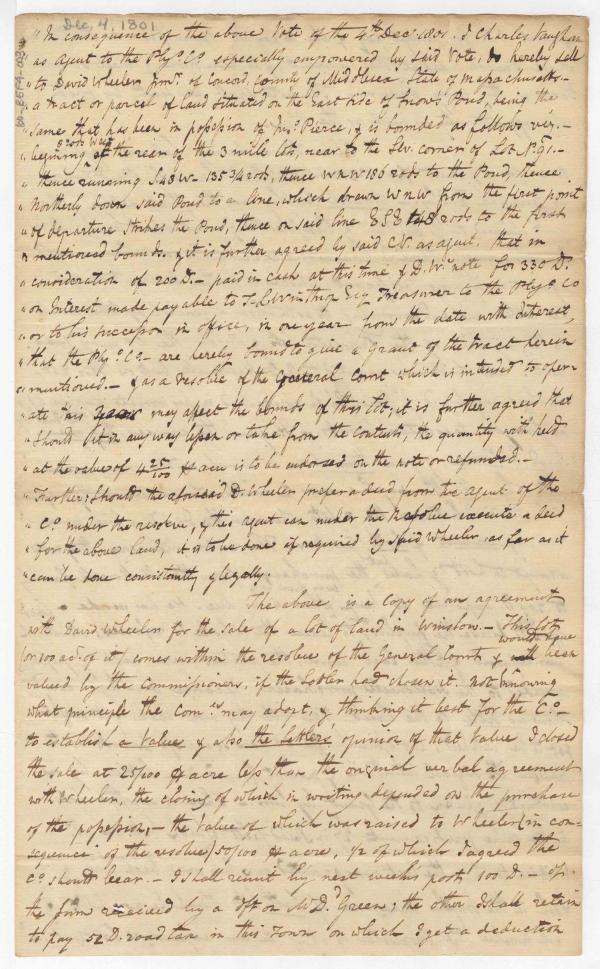 Dec. 4, 1801
"In consequence of the above Vote of the 4th Dec 1801. I Charles Vaughan
"as Agent to the Plyo Co especially empowered by said Vote, do hereby sell
"to David Wheeler Junr. of Concord, County of Middlesex, State of Massachusetts –
"a tract or parcel of land situated on the East side of Snows Pond, being the
"same that has been in possession of Pierce, & is bounded as follows viz. –
"begining at the rear of the 3 mile lots, near to the SW. corner of Lot No 91. –
"thence running S48W – 135 3/4 rods, thence WNW 186 rods to the Pond, thence
"Northerly down said Pond to a line, which drawn WNW from the first point
"of departure strikes the Pond, thence on said line ESE 148 rods to the first
"mentioned bounds. & it is further agreed by said CV. as agent, that in
"consideration of 200 D. – paid in cash at this time & D. Ws note for 330 D.
"on Interest made payable to T. L. Winthrop Esq Treasurer to the Plyo Co
"or to his successor in office, in one year from the date with Interest,
"that the Plyo Co – are hereby bound to give a Grant of the Tract herein
"mentioned. – & as a resolve of the General Court which is intended to oper-
"ate this may affect the bounds of this lot; it is further agreed that
"Should it in any way lessen or take from the contents, the quantity with held
"at the value of 4 25/100 acre is to be endorsed on the note or refunded. –
"Further; Should the aforesaid D. Wheeler prefer a deed from the agent of the
"Co. under the resolve, & this agent can under the Resolve execute a deed
"for the above land, it is to be done if required by said Wheeler, as far as it
"can be done consistently & legally.
The above is a copy of an agreement
with David Wheeler for the sale of a lot of land in Winslow. – This lot
(or 100 ac. of it) comes within the resolve of the General Court & would have been
valued by the Commissioners, if the Settler had chosen it. Not knowing
what principle the Comrs may adopt, & thinking it best for the Co. –
to establish a Value & also the Settlers opinion of that Value I closed
the sale at 25/100 acre less than the original verbal agreement
with Wheeler, the closing of which in writing depended on the purchase
of the possession, – the Value of which was raised to Wheeler (in con=
sequence of the resolve) 50/100 acre, 1/2 of which I agreed the
Co should bear. – I shall remit by next weeks post 100 D. – of
the sum received by a dft on Green; the other I shall retain
to pay 52 D. road tax in this Town on which I get a deduction